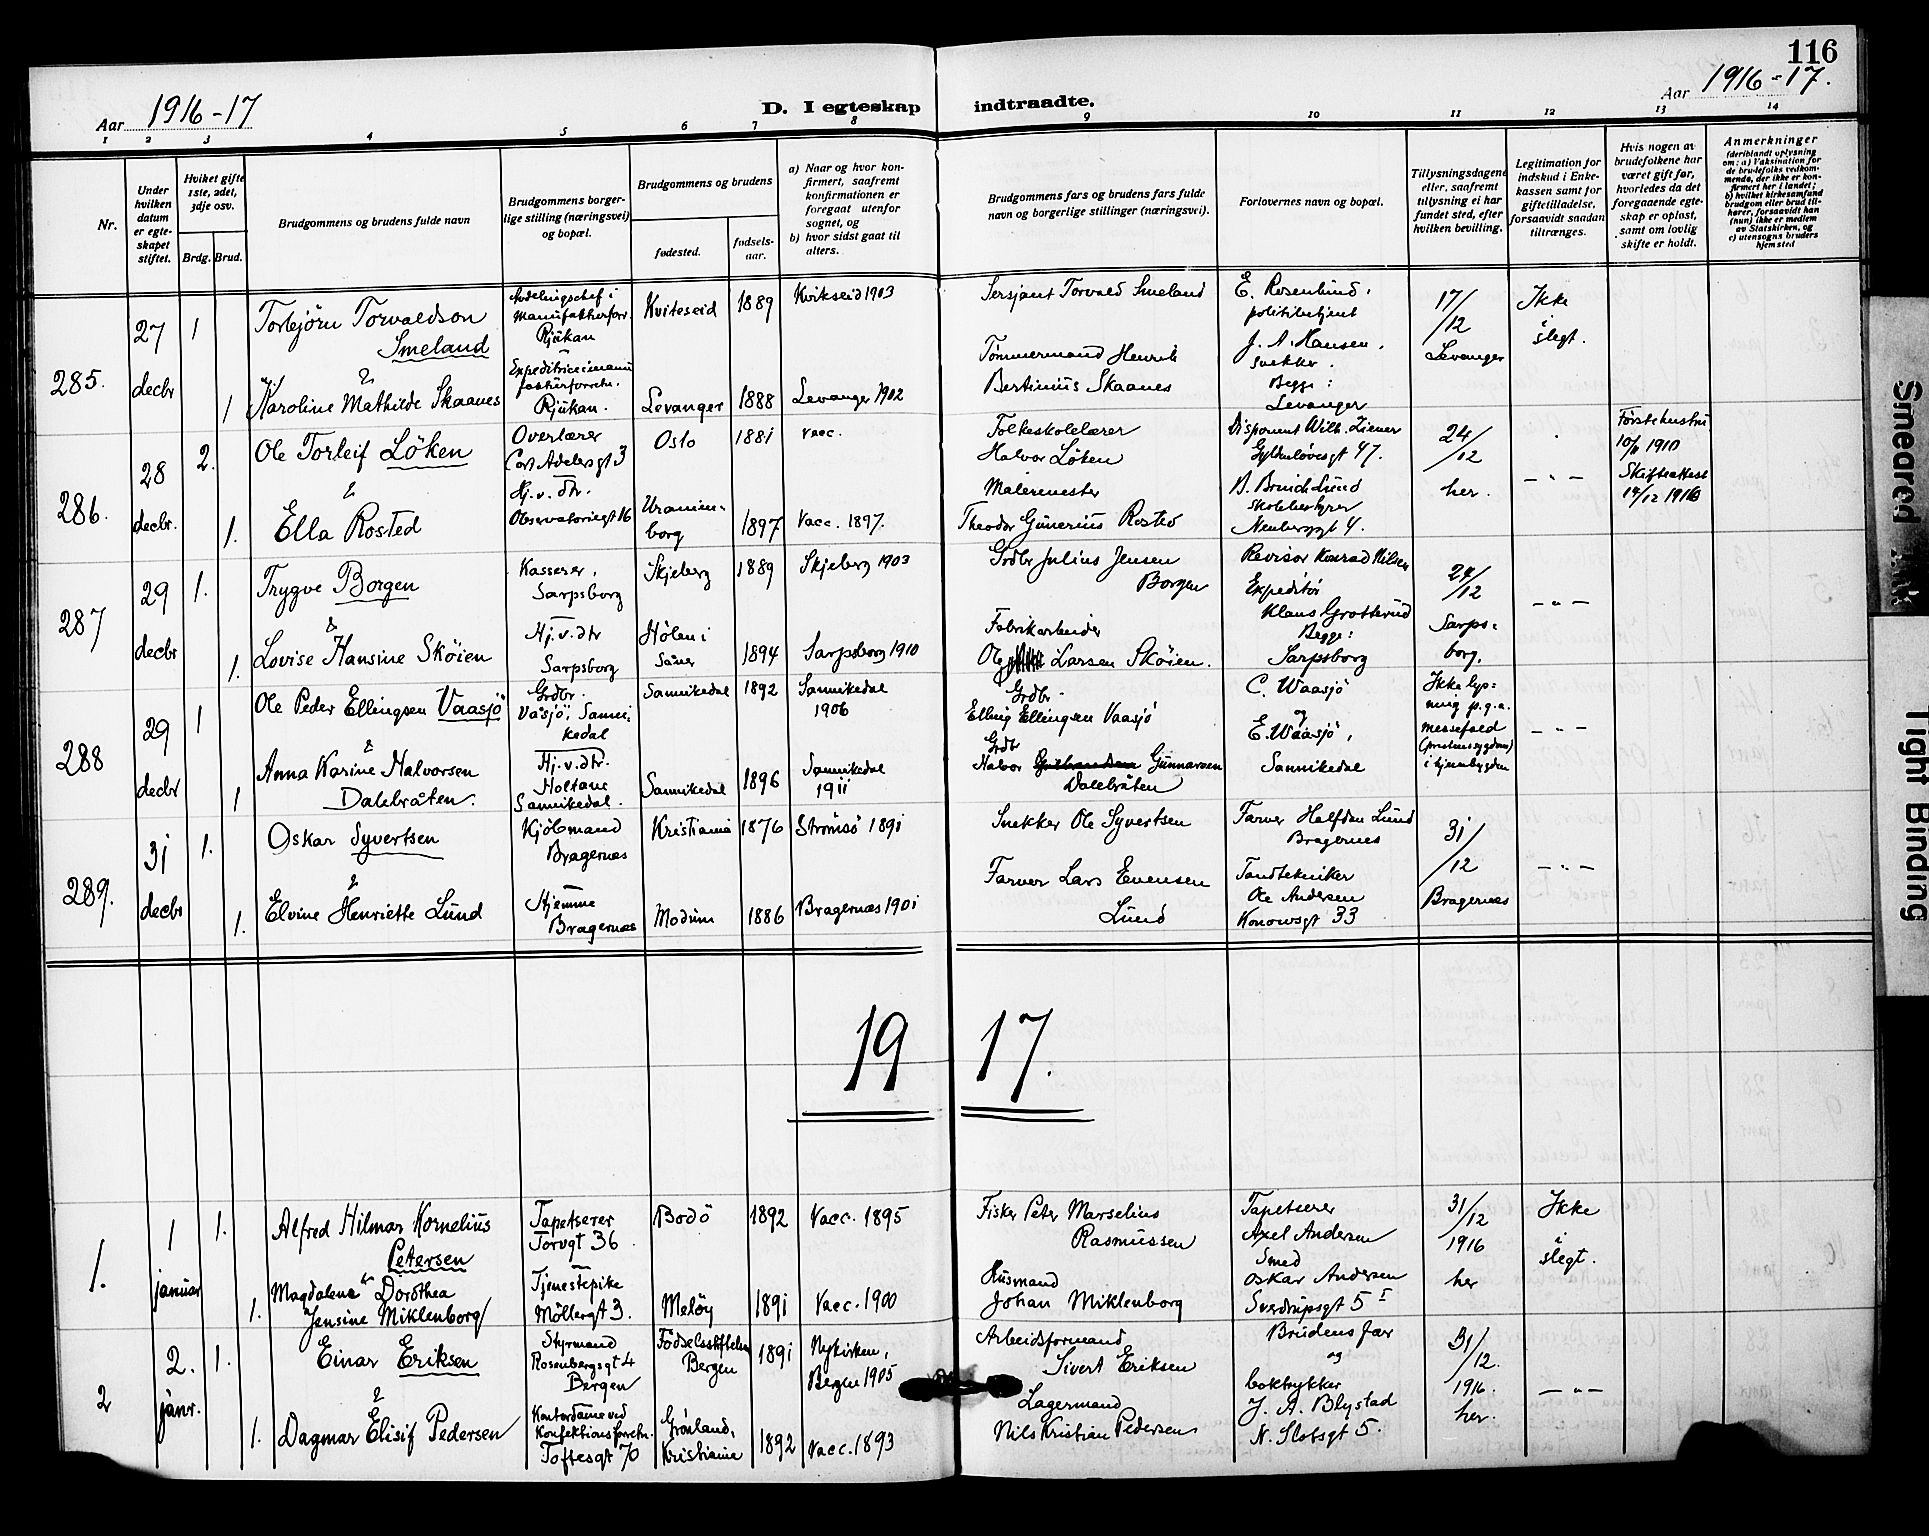 116
Aar 1916-17
D. I egteskap indtraadte.
Aar 1916-17.
1 2 3 4 5 6 7 8 9 10 11 12 13 14
Nr.
Under hvilken datum er egteskapet stiftet.
Hvilket gifte 1ste, 2det, 3dje osv.
Brdg. Brud.
Brudgommens og brudens fulde navn
Brudgommens borgerlige stilling (næringsvei) og bopæl.
Brudgommens og brudens
fødested.
fødselsaar.
a) Naar og hvor konfirmert, saafremt konfirmationen er foregaat utenfor sognet, og
b) hvor sidst gaat til alters.
Brudgommens fars og brudens fars fulde navn og borgerlige stillinger (næringsvei).
Forlovernes navn og bopæl.
Tillysningsdagene eller, saafremt tillysning ei har fundet sted, efter hvilken bevilling.
Legitimation for indskud i Enkekassen samt for giftetilladelse, forsaavidt saadan tiltrænges.
Hvis nogen av brudefolkene har været gift før, hvorledes da det foregaaende egteskap er opløst, samt om lovlig skifte er holdt.
Anmerkninger
(deriblandt oplysning om: a) Vaksination for de brudefolks vedkommende, der ikke er konfirmert her i landet; b) hvilket kirkesamfund brudgom eller brud tilhører, forsaavidt han (hun) ikke er medlem av Statskirken, og c) utensogns bruders hjemsted
285.
27 decbr
1
Torbjörn Torvaldson Smeland
Avdelingschef i Manufakturforr. Rjukan
Kviteseid
1889
Kvikseid 1903
Sersjant Torvald Smeland
E. Rosenlund, politibetjent
J. A. Hansen, snekker.
Begge: Levanger
17/12 Levanger
Ikke i slegt.
&
1
Karoline Mathilde Skaanes
Expeditrice i manufakturforretn. Rjukan.
Levanger
1888
Levanger 1902
Tömmermand Henrik Bertinius Skaanes
286.
28 decbr.
2.
Ole Torleif Löken
Overlærer Cort Adelersgt 3
Oslo
1881
Vacc.
Folkeskolelærer Halvor Löken
Disponent Wilh. Ziener Gyldenlövesgt 47.
24/12 her.
— " —
Förstehustru 10/11 1910
Skifteattest 14/12 1916
&
1.
Ella Rosted
Hj. v. dtr. Observatoriegt 16
Uranienborg
1897
Vacc. 1897.
Malermester Theodor Gunerius Rosted
B. Bruich Lund Skolebestyrer Neubergsgt 4.
287
29 decbr
1.
Trygve Borgen
Kasserer, Sarpsborg
Skjeberg
1889
Skjeberg 1903
Grdbr Julius Jensen Borgen
Revisor Konrad Nilsen
Expeditör Klaus Grotterud
Begge: Sarpsborg
24/12 Sarpsborg.
— " —
&
1.
Lovise Hansine Sköien
Hj. v. dtr Sarpsborg
Hölen i Såner
1894
Sarpsborg 1910
Fabrikarbeider Ole Larsen Sköien.
288
29 decbr
1
Ole Peder Ellingsen Vaasjö
Grdbr. Våsjö, Sannikedal
Sannikedal
1892
Sannikedal 1906
Grdbr. Elling Ellingsen Vaasjö
C. Waasjö og E. Waasjö, Sannikedal
Ikke lysning p.g.a. messefald (prestens sygdom) i hjembygden
— " —
&
1
Anna Karine Halvorsen Dalebråten.
Hj. v. dtr. Holtane Sannikedal.
Sannikedal
1896
Sannikedal 1911
Grdbr Halvor Gunnarsen Dalebråten
289.
31 decbr
1.
Oskar Syvertsen
Kjöbmand Bragernæs
Kristiania
1876
Strömsö 1891
Snekker Ole Syvertsen
Farver Halfdan Lund Bragernes
31/12 Bragernæs
— " —
&
1.
Elvine Henriette Lund
Hjemme Bragernæs
Modum
1886
Bragernæs 1901
Farver Lars Evensen Lund
Tandtekniker Ole Andersen Konowsgt 33
1917.
1.
1 januar
1.
Alfred Hilmar Kornelius Petersen
Tapetserer Torvgt 36
Bodö
1892
Vacc. 1895
Fisker Peter Marselius Rasmussen
Tapetserer Axel Andersen
Smed Oskar Andersen Sverdrupsgt 5 I
31/12 1916 her
Ikke i slegt.
&
1.
Magdalena Dorothea Jensine Miklenborg/
Tjenestepike Möllergt 3.
Melöy
1891
Vacc. 1900
Husmand Johan Miklenborg
2
2. janr.
1.
Einar Eriksen
Styrmand Rosenbergsgt 4 Bergen
Födselsstiftelsen Bergen
1891
Nykirken, Bergen 1905
Arbeidsformand Sivert Eriksen
Brudens far og boktrykker J. A. Blystad N. Slotsgt 5.
31/12. 1916. her.
— " —
&
1.
Dagmar Elisif Pedersen
Kontordame ved Konfektionsforretn. Toftesgt 70
Grönland, Kristiania
1892
Vacc. 1893
Lagermand Nils Kristian Pedersen
Smeared Ink
Tight Binding